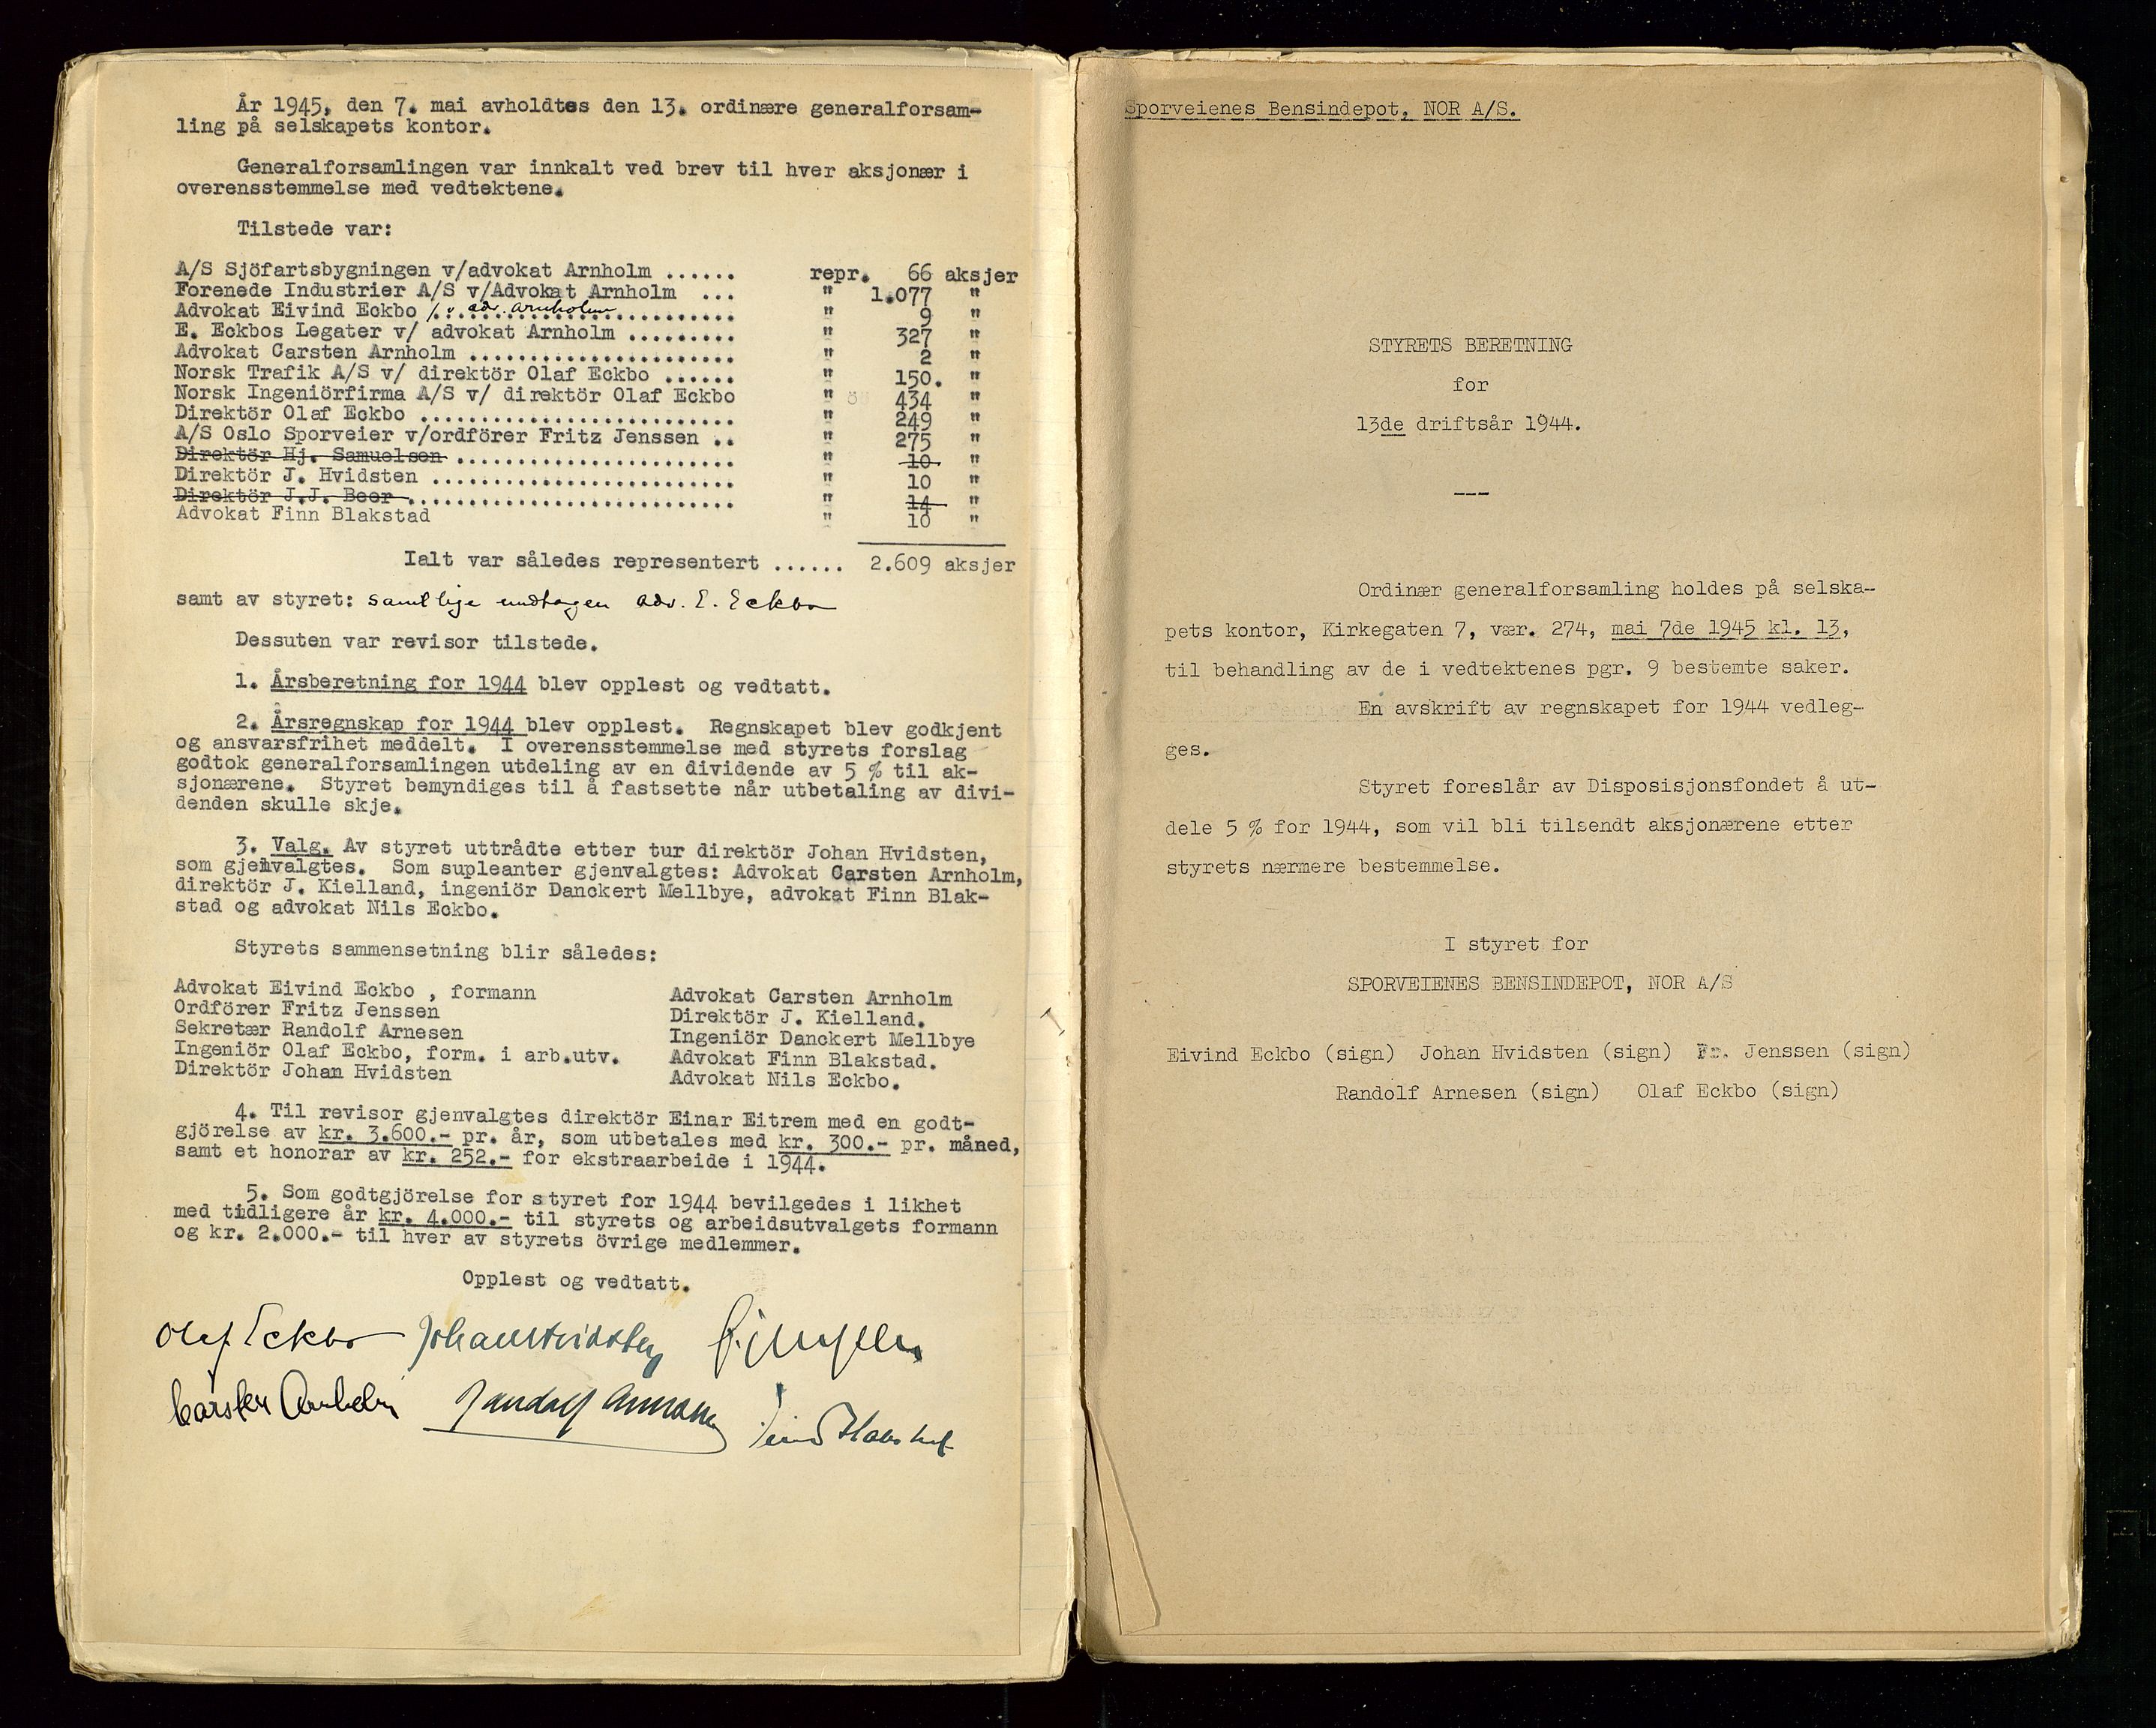 År 1945, den 7. mai avholdtes den 13. ordinære generalforsam-
ling på selskapets kontor.
Generalforsamlingen var innkalt ved brev til hver aksjonær i
overensstemmelse med vedtektene.
Tilstede var:
A/S Sjöfartsbygningen v/advokat Arnholm ...... repr. 66 aksjer
Forenede Industrier A/S v/Advokat Arnholm ... " 1.077 "
Advokat Eivind Eckbo /v adv. Arnholm ........ " 9 "
E. Eckbos Legater v/ advokat Arnholm ......... " 327 "
Advokat Carsten Arnholm ...................... " 2 "
Norsk Trafik A/S v/ direktör Olaf Eckbo ...... " 150. "
Norsk Ingeniörfirma A/S v/ direktör Olaf Eckbo " 434 "
Direktör Olaf Eckbo .......................... " 249 "
A/S Oslo Sporveier v/ordförer Fritz Jenssen .. " 275 "
Direktör Hj. Samuelsen ....................... " 10 "
Direktör J. Hvidsten ......................... " 10 "
Direktör J.J. Beer ........................... " 14 "
Advokat Finn Blakstad " 10 "
Ialt var således representert ...... 2.609 aksjer
samt av styret: samtlige undtagen adv. E. Eckbo
Dessuten var revisor tilstede.
1. Årsberetning for 1944 blev opplest og vedtatt.
2. Årsregnskap for 1944 blev opplest. Regnskapet blev godkjent
og ansvarsfrihet meddelt. I overensstemmelse med styrets forslag
godtok generalforsamlingen utdeling av en dividende av 5 % til ak-
sjonærene. Styret bemyndiges til å fastsette når utbetaling av divi-
denden skulle skje.
3. Valg. Av styret uttrådte etter tur direktör Johan Hvidsten,
som gjenvalgtes. Som supleanter gjenvalgtes: Advokat Carsten Arnholm,
direktör J. Kielland, ingeniör Danckert Mellbye, advokat Finn Blak-
stad og advokat Nils Eckbo.
Styrets sammensetning blir således:
Advokat Eivind Eckbo , formann
Ordförer Fritz Jenssen
Sekretær Randolf Arnesen
Ingeniör Olaf Eckbo, form. i arb.utv.
Direktör Johan Hvidsten
Advokat Carsten Arnholm
Direktör J. Kielland.
Ingeniör Danckert Mellbye
Advokat Finn Blakstad.
Advokat Nils Eckbo.
4. Til revisor gjenvalgtes direktör Einar Eitrem med en godt-
gjörelse av kr. 3.600.- pr. år, som utbetales med kr. 300.- pr. måned,
samt et honorar av kr. 252.- for ekstraarbeide i 1944.
5. Som godtgjörelse for styret for 1944 bevilgedes i likhet
med tidligere år kr. 4.000.- til styrets og arbeidsutvalgets formann
og kr. 2.000.- til hver av styrets övrige medlemmer.
Opplest og vedtatt.
Olaf Eckbo Johan Hvidsten Fr. Jenssen
Carsten Arnholm Randolf Arnesen Finn Blakstad
Sporveienes Bensindepot, NOR A/S.
STYRETS BERETNING
for
13de driftsår 1944.
---
Ordinær generalforsamling holdes på selska-
pets kontor, Kirkegaten 7, vær. 274, mai 7de 1945 kl. 13,
til behandling av de i vedtektenes pgr. 9 bestemte saker.
En avskrift av regnskapet for 1944 vedleg-
ges.
Styret foreslår av Disposisjonsfondet å ut-
dele 5 % for 1944, som vil bli tilsendt aksjonærene etter
styrets nærmere bestemmelse.
I styret for
SPORVEIENES BENSINDEPOT, NOR A/S
Eivind Eckbo (sign) Johan Hvidsten (sign) Fr. Jenssen (sign)
Randolf Arnesen (sign) Olaf Eckbo (sign)